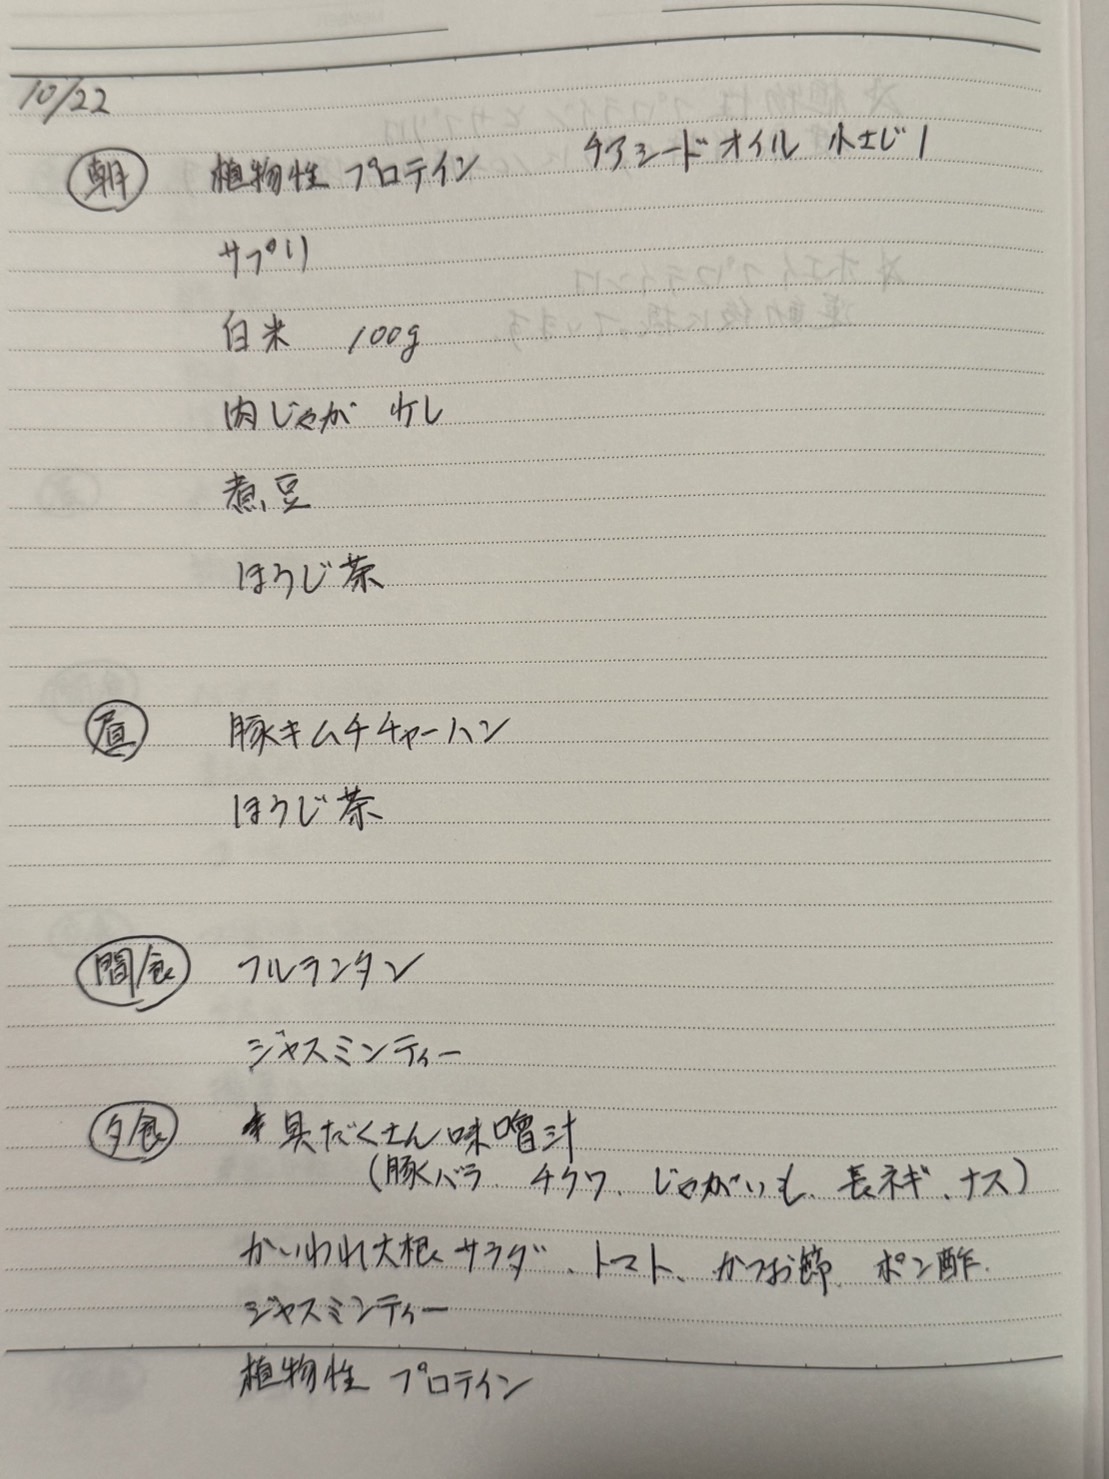 10/22
朝 植物性プロテイン チアシードオイル 小さじ1
サプリ
白米 100g
肉じゃが 少し
煮豆
ほうじ茶
昼 豚キムチチャーハン
ほうじ茶
間食 フルランタン
ジャスミンティー
夕食 具だくさん味噌汁
(豚バラ、チクワ、じゃがいも、長ネギ、ナス)
かいわれ大根サラダ、トマト、かつお節、ポン酢
ジャスミンティー
植物性プロテイン